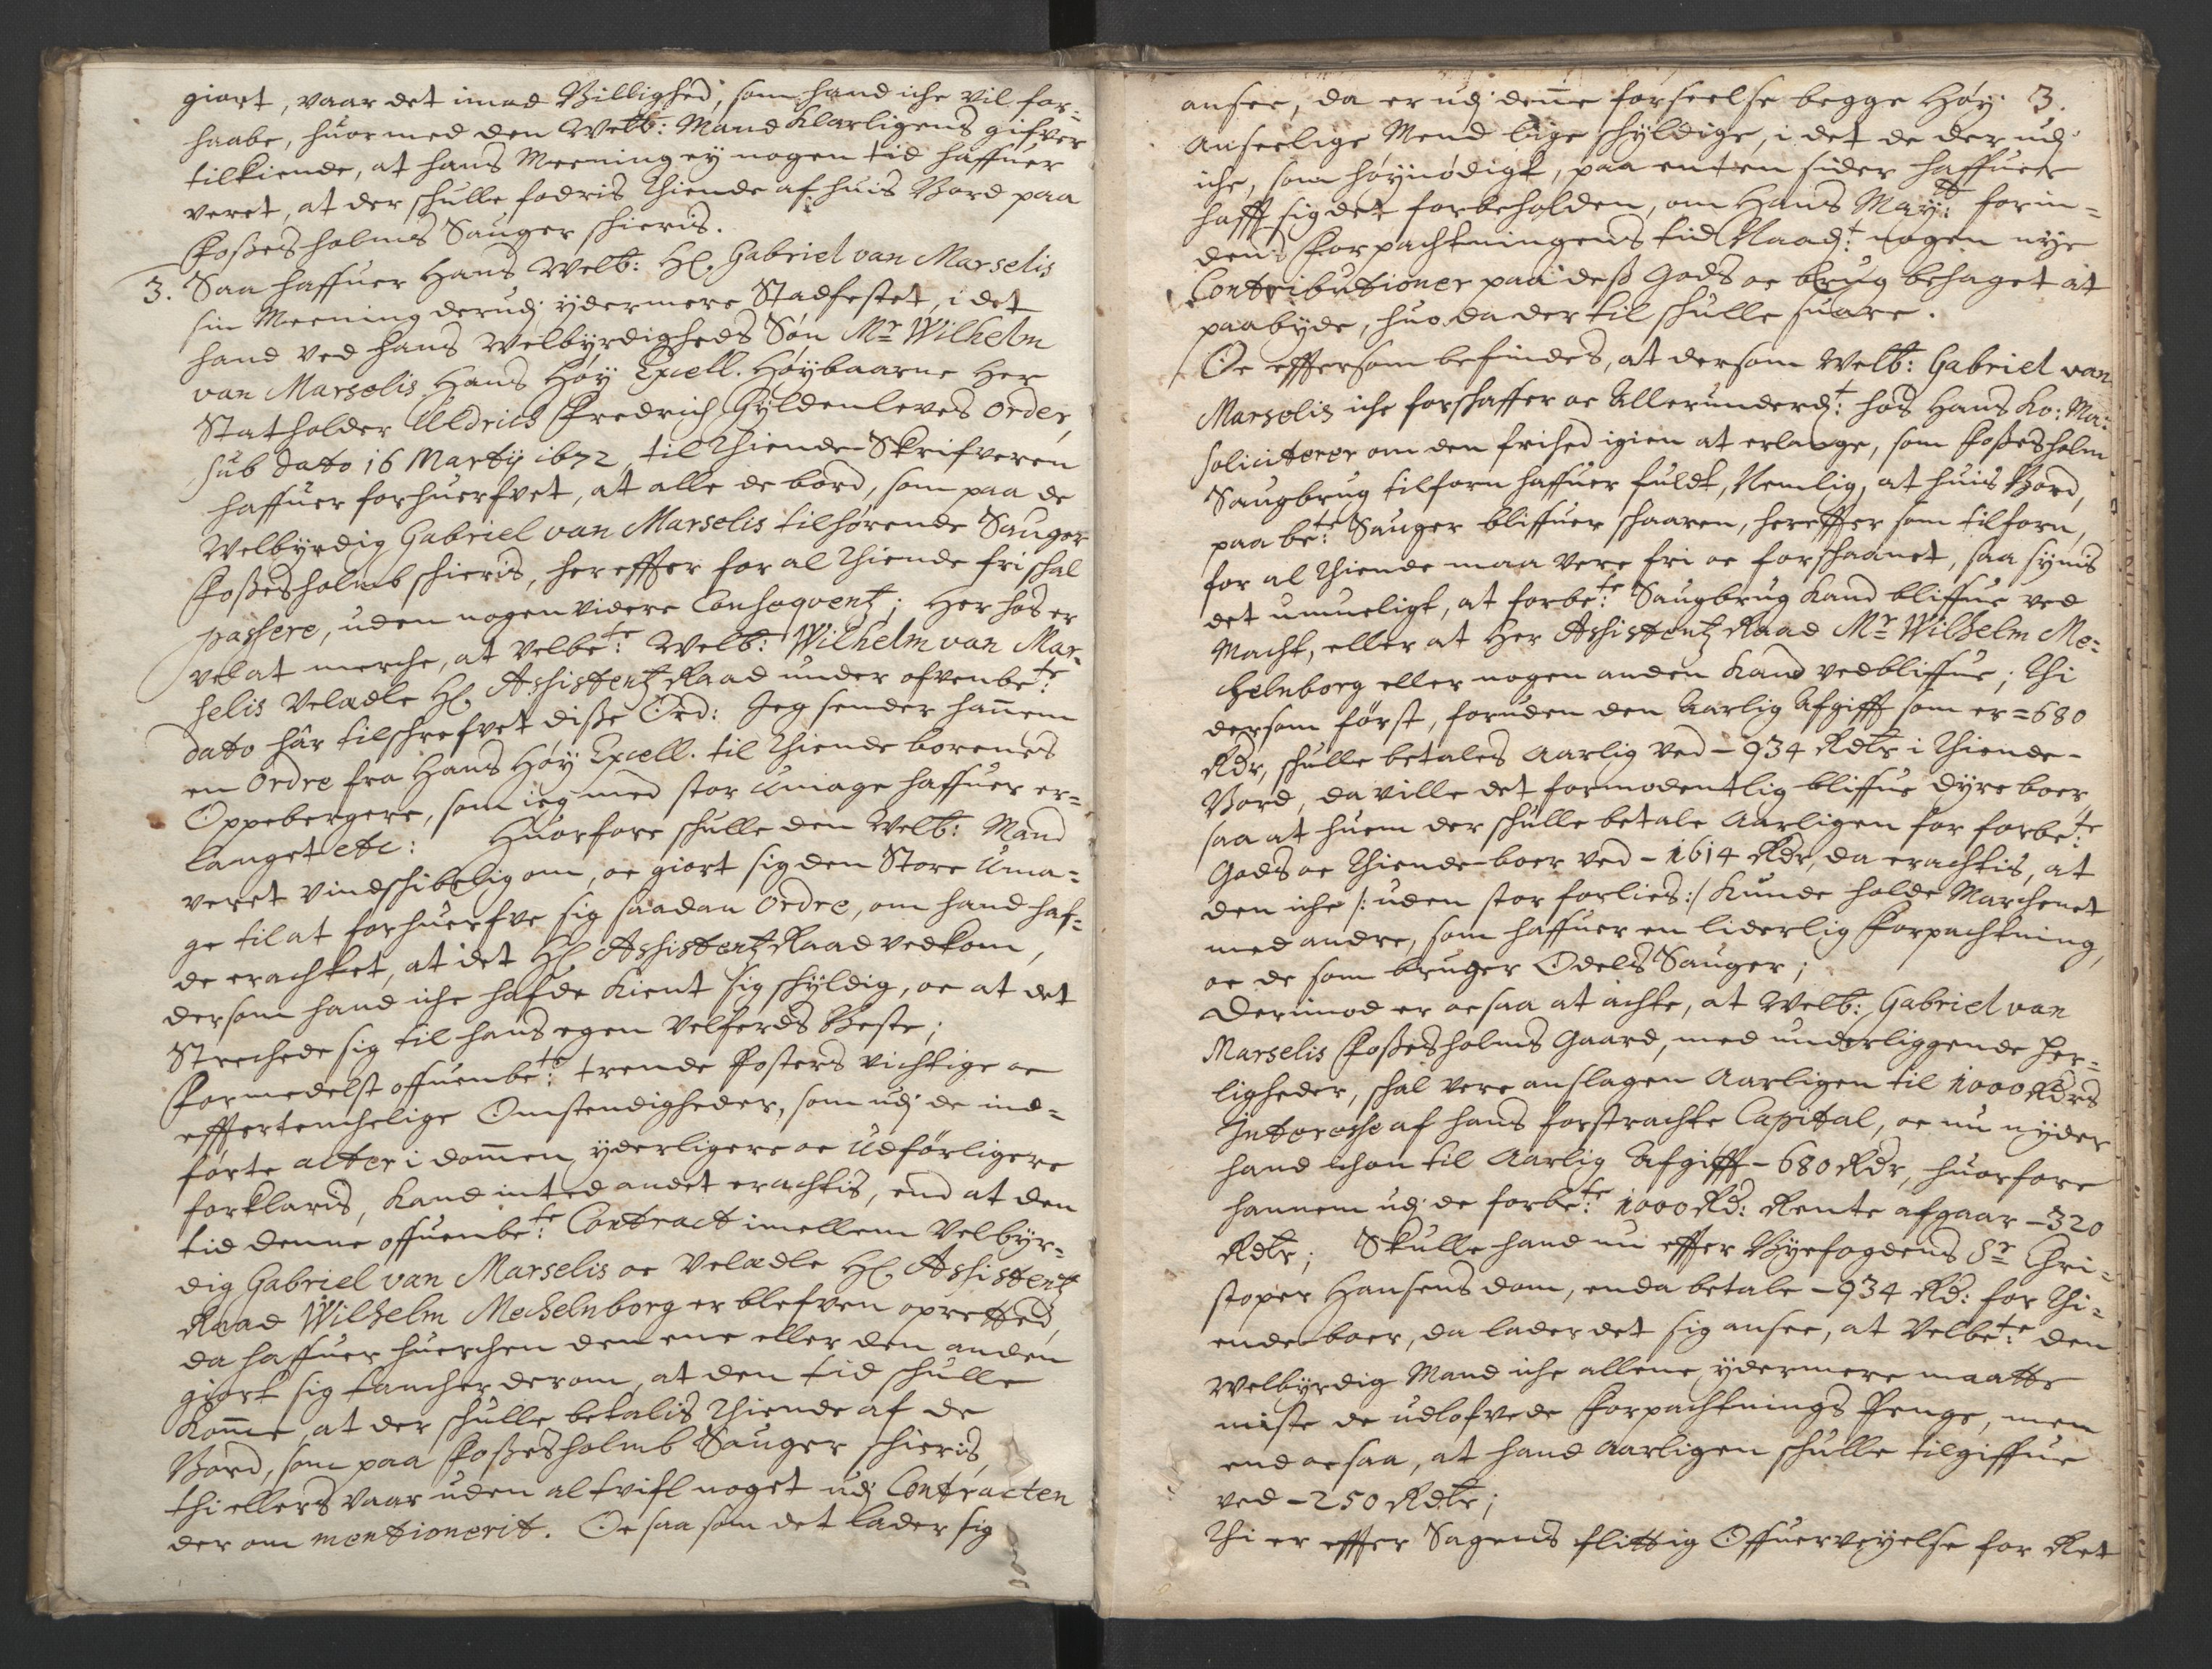 giort, vaar det imod Billighed, som hand iche vil for-
haabe, huormed den Welb: Mand Klarligens gifver
tilkiende, at hans Meening ey nogen tid haffuer
veret, at der schulle fodris Thiende af huis Bord paa
Foßesholms Sauger schieris.
3. Saa haffuer Hans Welb: Hr. Gabriel van Marselis
sin Meening derudj ydermere Stadfestet, i det
hand ved hans Welbyrdigheds Søn Mr Wilhelm
van Marselis, Hans Høy Excell. Høybaarne Her
Statholder Uldrich Fredrich Gyldenleves order,
sub dato 16 Martÿ 1672, til Thiende Skrifveren
haffuer forhuerfvet, at alle de bord, som paa de
Welbyrdig Gabriel van Marselis tilhørende Sauger
Foßesholmb schieris, hereffter for al Thiende fri schal
passere, uden nogen videre Conseqventz; Her hos er
vel at merche, at velbete: Welb: Wilhelm van Mar-
selis Veladle Hr. Assistentz Raad under ofvenbete:
dato hâr tilschrefvet diße Ord: Jeg sender hannem
en Ordre fra Hans Høy Excell. til Thiende borenes
Oppebergere, som ieg med stor Umage haffuer er-
langet etc: Huorfore schulle den Welb: Mand
veret vindschibelig om, oc giort sig den Store Uma-
ge til at forhuerfve sig saadan Ordre, om hand haf-
de erachtet, at det Hr Assistentz Raad vedkom,
dersom hand iche hafde Kient sig schyldig, oc at det
Strechede sig til hans egen Velferds Beste;
Formedelst offuenbete: trende Posters vichtige oc
efftertenchelige Omstendigheder, som udj de ind-
førte acter i dommen yderligere oc Udførligere
forklaris, Kand inted andet erachtis, end at den
tid denne offuenbete: Contract imellem Velbyr-
dig Gabriel van Marselis oc Veladle Hr. Assistentz
Raad Wilhelm Mechelnborg er blefven oprettet,
da haffuer huerchen den ene eller den anden
giort sig tancher derom, at den tid schulle
Komme, at der schulle betalis Thiende af de
Bord, som paa Foßesholmb Sauger schieris,
thi ellers vaar uden al tvifl noget udj Contracten
der om mentionerit. Oc saa som det lader sig
ansee, da er udj denne forseelse begge Høy- 3.
anseelige Mend lige schyldige, i det de der udj
iche, som høynødigt, paa enten sider haffuer
hafft sig det forbeholden, om Hans Mayt: forin-
den Forpachtningens tid Naadt: nogen nye
Contributioner paa deß Gods oc brug behaget at
paabyde, huo da der til schulle suare.
Oc efftersom befindes, at dersom Welb: Gabriel van
Marselis iche forschaffer oc Allerunderdt: hos Hans Ko: Ma:
soliciterer om den frihed igien at erlange, som Foßesholm
Saugbrug tilforn haffuer fuldt, Nemlig, at huis Bord,
paa bete: Sauger bliffuer schaaren, hereffter som tilforn,
for al Thiende maa vere fri oc forschaanet, saa synis
det umueligt, at forbete: Saugbrug Kand bliffue ved
Macht, eller at Her Assistentz Raad Mr Wilhelm Me-
chelnborg eller nogen anden Kand vedbliffue; Thi
dersom först, foruden den Aarlig Afgifft som er = 680
Rdr, schulle betales Aarlig ved – 934 Rdlr i Thiende-
Bord, da ville det formodentlig bliffue dyre boer,
saa at huem der schulle betale Aarligen for forbete:
Gods oc Thiende-boer ved – 1614 Rdr, da erachtis, at
den iche /: uden stor forlies :/ Kunde holde Marchenet
med andre, som haffuer en liderlig Forpachtning,
oc de som bruger Odels Sauger;
Derimod er oc saa at achte, at Welb: Gabriel van
Marselis Foßesholms Gaard, med underliggende her-
ligheder, schal vere anslagen Aarligen til 1000 Rdrs
Interesse af hans forstrachte Capital, oc nu nyder
hand ichon til Aarlig Afgifft – 680 Rdr, huorfore
hannem udj de forbete: 1000 Rd: Rente afgaar – 320
Rdlr; Skulle hand nu effter Byefogdens Sr Chri-
stoper Hansens dom, enda betale – 934 Rd: for Thi-
ende-boer, da lader det sig ansee, at Velbete: den
Welbyrdig Mand iche allene ydermere maatte
miste de udlofvede Forpachtnings Penge, men
end oc saa, at hand Aarligen schulle tilgiffue
ved – 250 Rdlr;
Thi er effter Sagens flittig Offuerveyelse for Ret